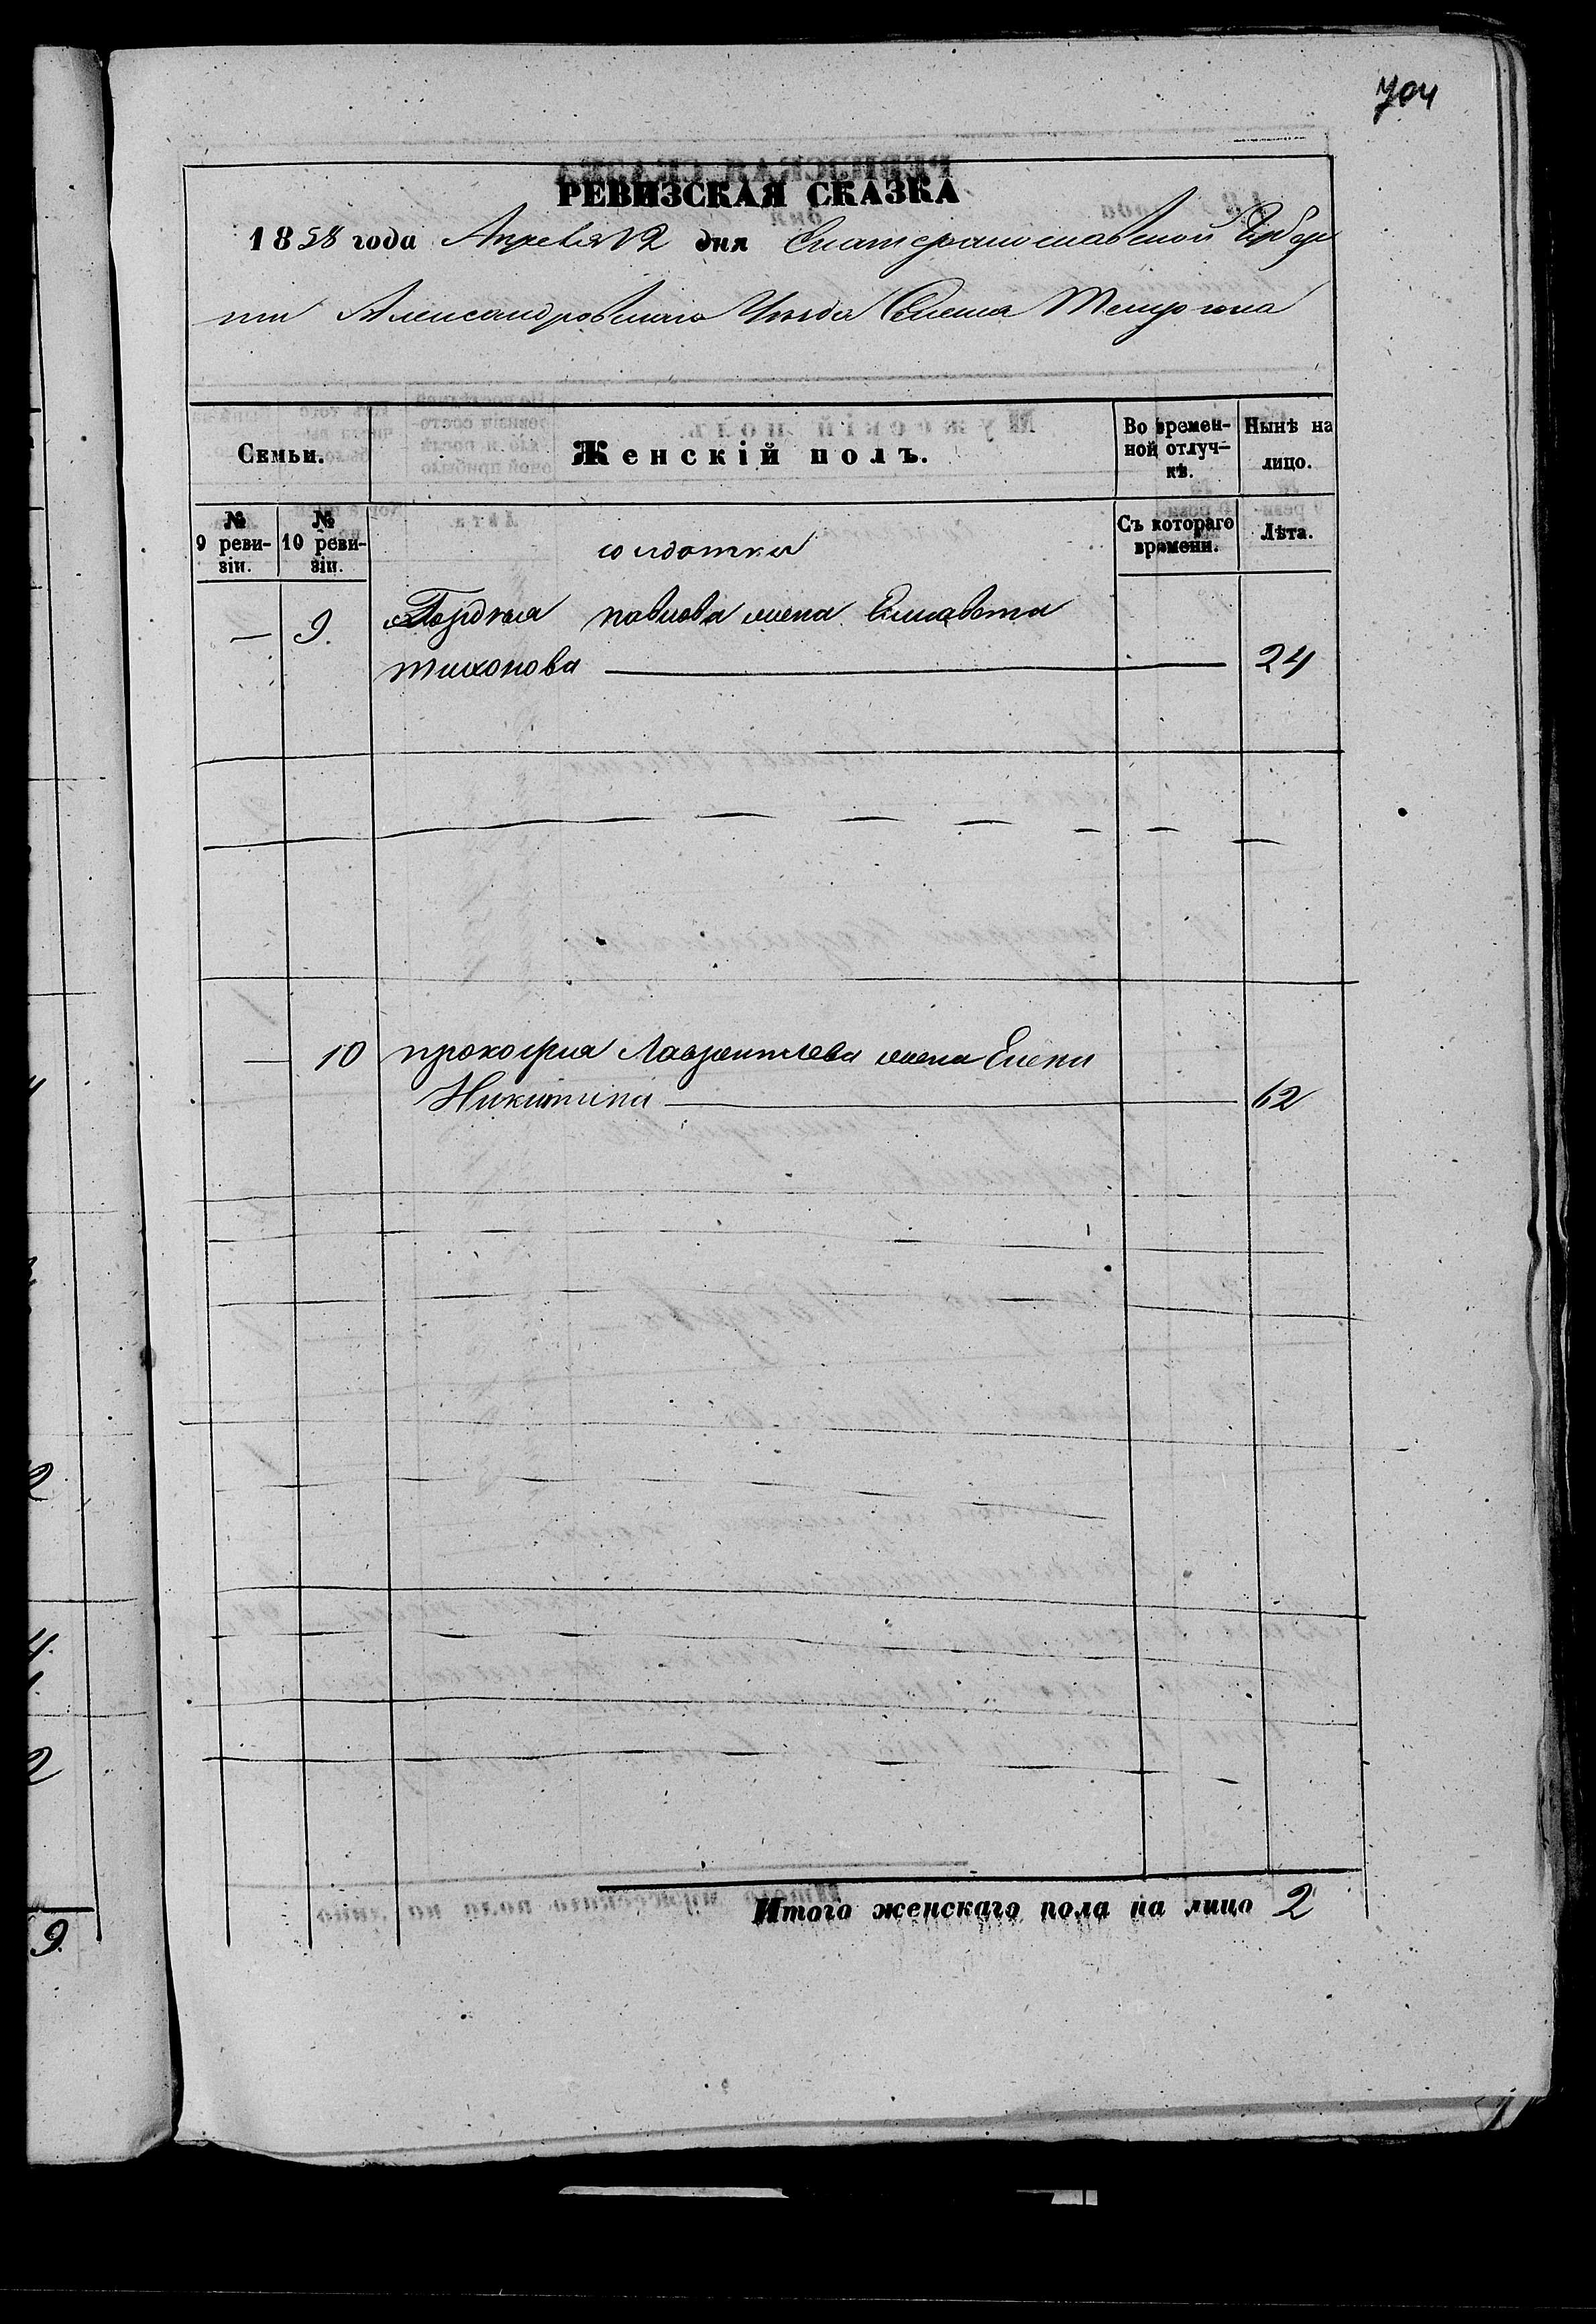 704
РЕВИЗСКАЯ СКАЗКА
1858 года Апреля 12 дня Екатеринославской Губер
нии Александровскаго Уезда Селенія Темрюка
Семьи.
Женскій полъ.
Во времен-
ной отлуч-
кѣ.
Нынѣ на
лицо.
№
9 реви-
зіи.
№
10 реви-
зіи.
солдатки
Съ котораго
времени.
Лѣта.
— 9. павлова жена Елисавета
тихонова 24
— 10 прокофия Лаврентиева жена Елена
Никитина 62
Итого женскаго пола на лицо 2
9.